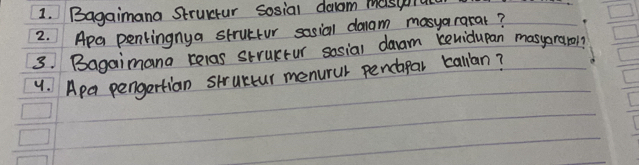 1. Bagaimana Struktur Sosial dalam masyarakat
2. Apa pentingnya struktur sosial dalam masyarakat?
3. Bagaimana kelas struktur sosial dalam kehidupan masyarakat?
4. Apa pengertian struktur menurut pendapat kalian?